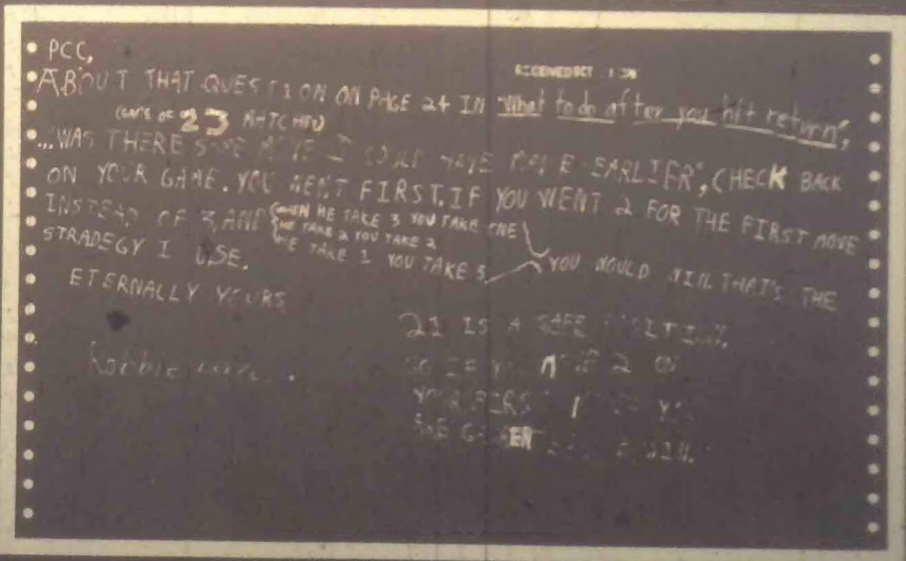 PCC,
RECEIVED OCT
ABOUT THAT QUESTION ON PAGE 24 IN "What to do after you hit return",
(GAME OF 23 MATCHES)
"...WAS THERE SOME MOVE I COULD HAVE MADE EARLIER", CHECK BACK
ON YOUR GAME. YOU WENT FIRST. IF YOU WENT 2 FOR THE FIRST MOVE
INSTEAD OF 3, AND
WHEN HE TAKE 3 YOU TAKE ONE
HE TAKE 2 YOU TAKE 2
HE TAKE 1 YOU TAKE 3
YOU WOULD WIN. THAT'S THE
STRADEGY I USE.
ETERNALLY YOURS
Robbie
21 IS A SAFE POSITION.
SO IF YOU MOVE 2 ON
YOUR FIRST MOVE YOU
ARE WIN.